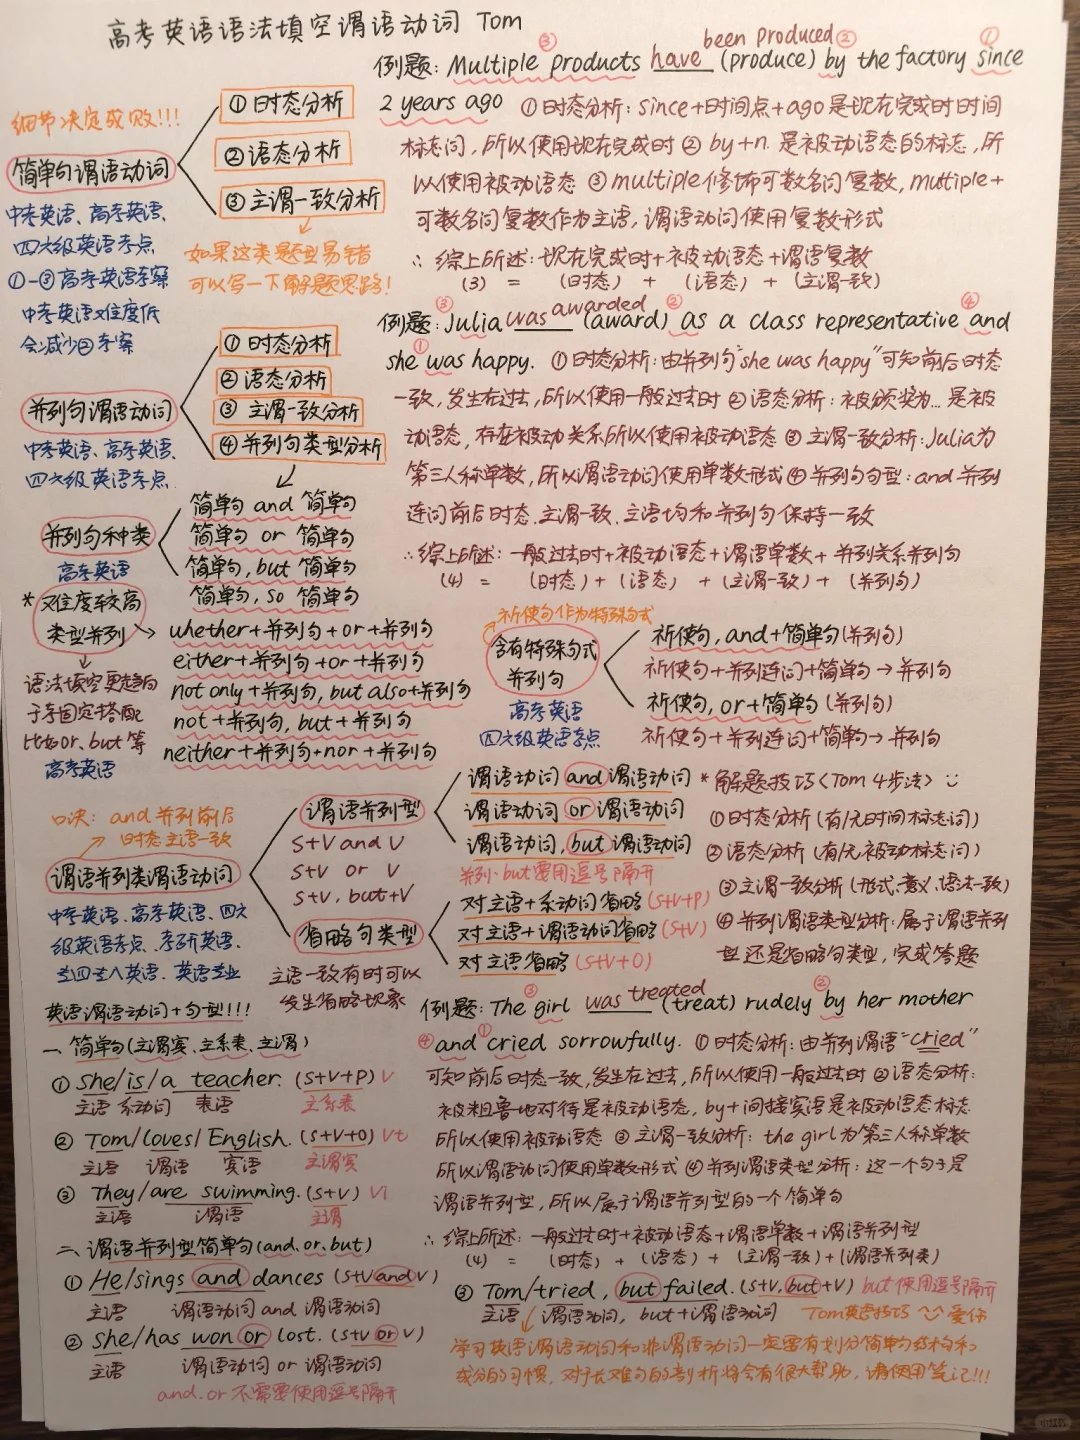 高考英语语法填空谓语动词 Tom
细节决定成败!!!
简单句谓语动词
①时态分析
②语态分析
③主谓一致分析
中考英语、高考英语、
四六级英语考点
①-③高考英语考察
中考英语难度低
会减少②考察
如果这类题型易错
可以写一下解题思路!
例题: Multiple products have been produced (produce) by the factory since
2 years ago ①时态分析: since+时间点+ago是现在完成时时间
标志词, 所以使用现在完成时 ② by+n. 是被动语态的标志, 所
以使用被动语态 ③ multiple修饰可数名词复数, multiple+
可数名词复数作为主语, 谓语动词使用复数形式
∴ 综上所述: 现在完成时+被动语态+谓语复数
(3) = (时态) + (语态) + (主谓一致)
并列句谓语动词
①时态分析
②语态分析
③ 主谓一致分析
④并列句类型分析
中考英语、高考英语、
四六级英语考点
例题: Julia was awarded (award) as a class representative and
she was happy. ①时态分析: 由并列句"she was happy"可知前后时态
一致, 发生在过去, 所以使用一般过去时 ② 语态分析: 被颁奖为... 是被
动语态, 存在被动关系所以使用被动语态 ③ 主谓一致分析: Julia为
第三人称单数, 所以谓语动词使用单数形式 ④ 并列句句型: and 并列
连词前后时态、主谓一致、主语均和并列句保持一致
∴综上所述: 一般过去时+被动语态+谓语单数+ 并列关系并列句
(4) = (时态) + (语态) + (主谓一致) + (并列句)
并列句种类
高考英语
简单句 and 简单句
简单句 or 简单句
简单句, but 简单句
简单句, so 简单句
*难度较高
类型并列
whether+并列句+or+并列句
either+并列句+or+并列句
not only+并列句, but also+并列句
not+并列句, but+并列句
neither+并列句+nor+并列句
语法填空更趋向
于考固定搭配
比如or、but等
高考英语
祈使句作为特殊句式
含有特殊句式
并列句
高考英语
四六级英语考点
祈使句, and+简单句(并列句)
祈使句+并列连词+简单句→并列句
祈使句, or+简单句(并列句)
祈使句+并列连词+简单句→并列句
口诀: and并列前后
时态主语一致
谓语并列类谓语动词
中考英语、高考英语、四六
级英语考点、考研英语、
专四专八英语、英语专业
谓语并列型
S+V and V
S+V or V
S+V, but+V
谓语动词 and 谓语动词
谓语动词 or 谓语动词
谓语动词, but 谓语动词
并列·but要用逗号隔开
省略句类型
主语一致有时可以
发生省略现象
对主语+系动词省略(S+V+P)
对主语+谓语动词省略(S+V)
对主语省略(S+V+O)
*解题技巧<Tom 4步法>
①时态分析(有/无时间标志词)
②语态分析(有/无被动标志词)
③主谓一致分析(形式、意义、语法一致)
④并列谓语类型分析: 属于谓语并列
型还是省略句类型, 完成答题
例题: The girl was treated (treat) rudely by her mother
and cried sorrowfully. ①时态分析: 由并列谓语"cried"
可知前后时态一致, 发生在过去, 所以使用一般过去时 ②语态分析:
被粗鲁地对待是被动语态, by+间接宾语是被动语态标志
所以使用被动语态 ③ 主谓一致分析: the girl为第三人称单数
所以谓语动词使用单数形式 ④并列谓语类型分析: 这一个句子是
谓语并列型, 所以属于谓语并列型的一个简单句
∴ 综上所述: 一般过去时+被动语态+谓语单数+谓语并列型
(4) = (时态) + (语态) + (主谓一致)+(谓语并列类)
英语谓语动词+句型!!!
一、简单句(主谓宾、主系表、主谓)
① She/is/a teacher. (S+V+P) V
主语 系动词 表语 主系表
② Tom/loves/English. (S+V+O) Vt
主语 谓语 宾语 主谓宾
③ They/are swimming. (S+V) Vi
主语 谓语 主谓
二、谓语并列型简单句(and、or、but)
① He/sings and dances (S+V and V)
主语 谓语动词 and 谓语动词
② She/has won or lost. (S+V or V)
主语 谓语动词 or 谓语动词
and、or 不需要使用逗号隔开
③ Tom/tried, but failed. (S+V, but+V) but使用逗号隔开
主语 谓语动词, but+谓语动词
Tom英语技巧 爱你
学习英语谓语动词和非谓语动词一定要有划分简单句结构和
成分的习惯, 对于长难句的剖析将会有很大帮助, 请使用笔记!!!
小红书